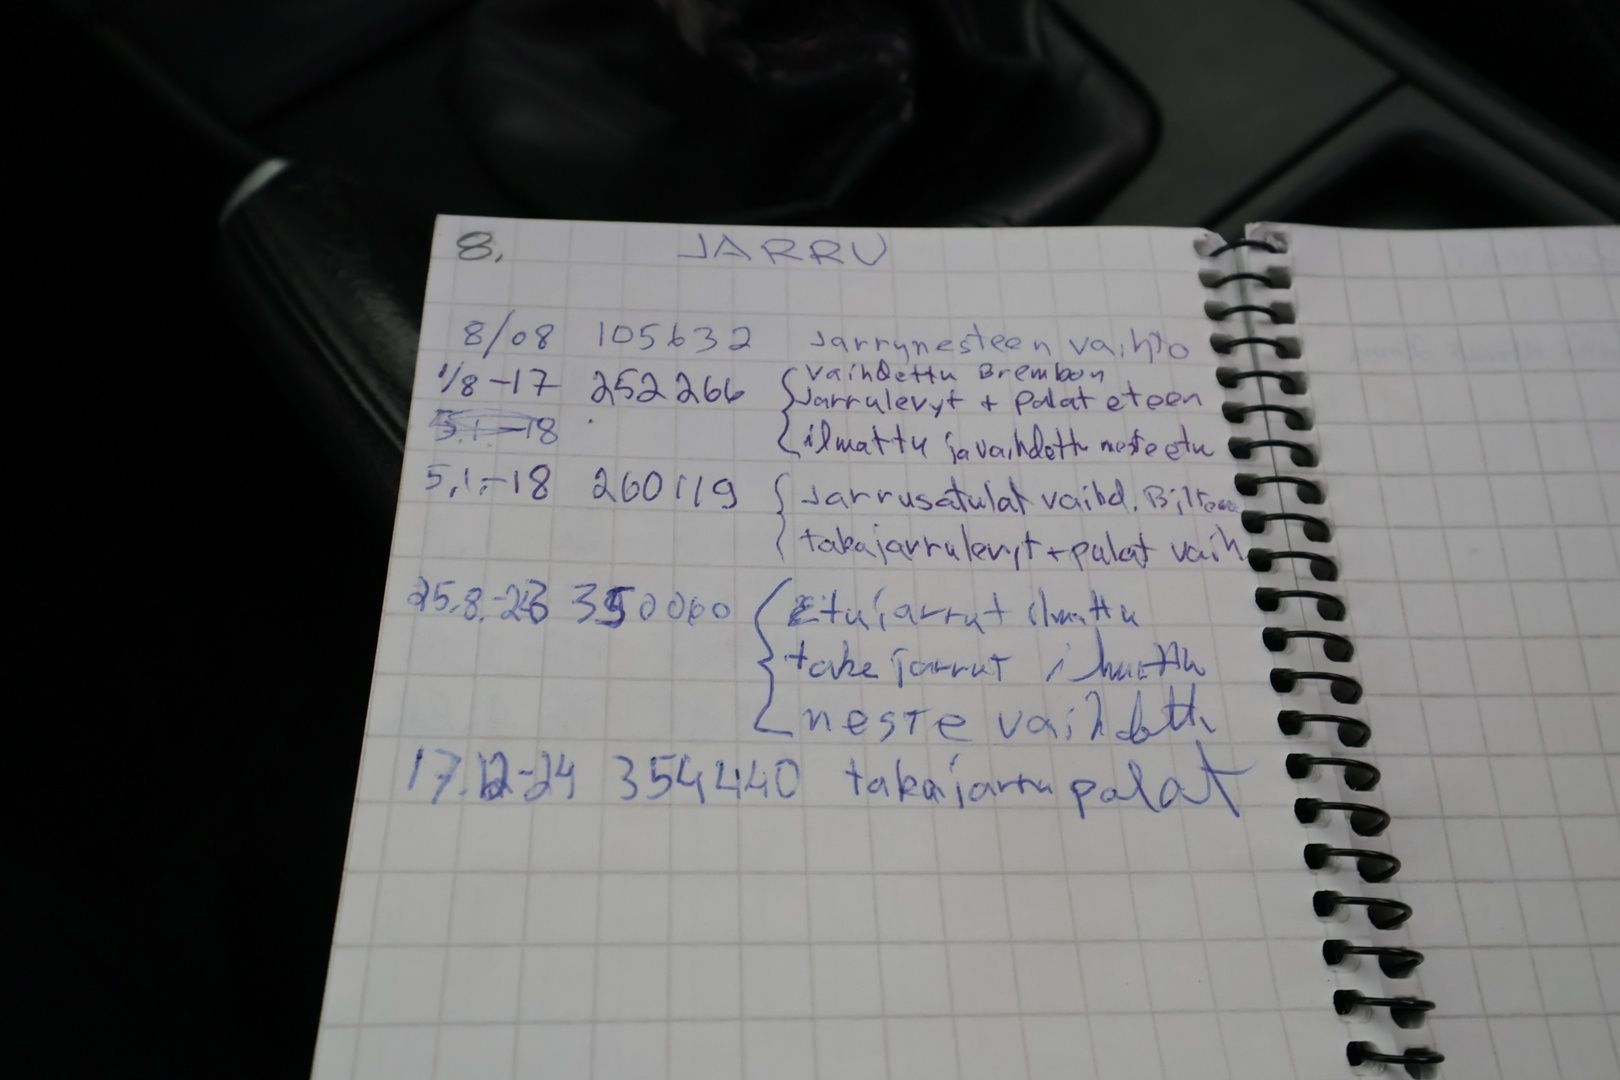 8. JARRU
8/08 105632 Jarrunesteen vaihto
1/8 -17 252266 vaihdettu Brembon
Jarrulevyt + palat eteen
5.1.-18 ilmattu ja vaihdettu neste etu
5.1.-18 260119 Jarrusatulat vaihd. Biltema
takajarrulevyt + palat vaih
25.8.-23 350000 Etujarrut ilmattu
taka jarrut ilmattu
neste vaihdettu
17.12-24 354440 takajarru palat